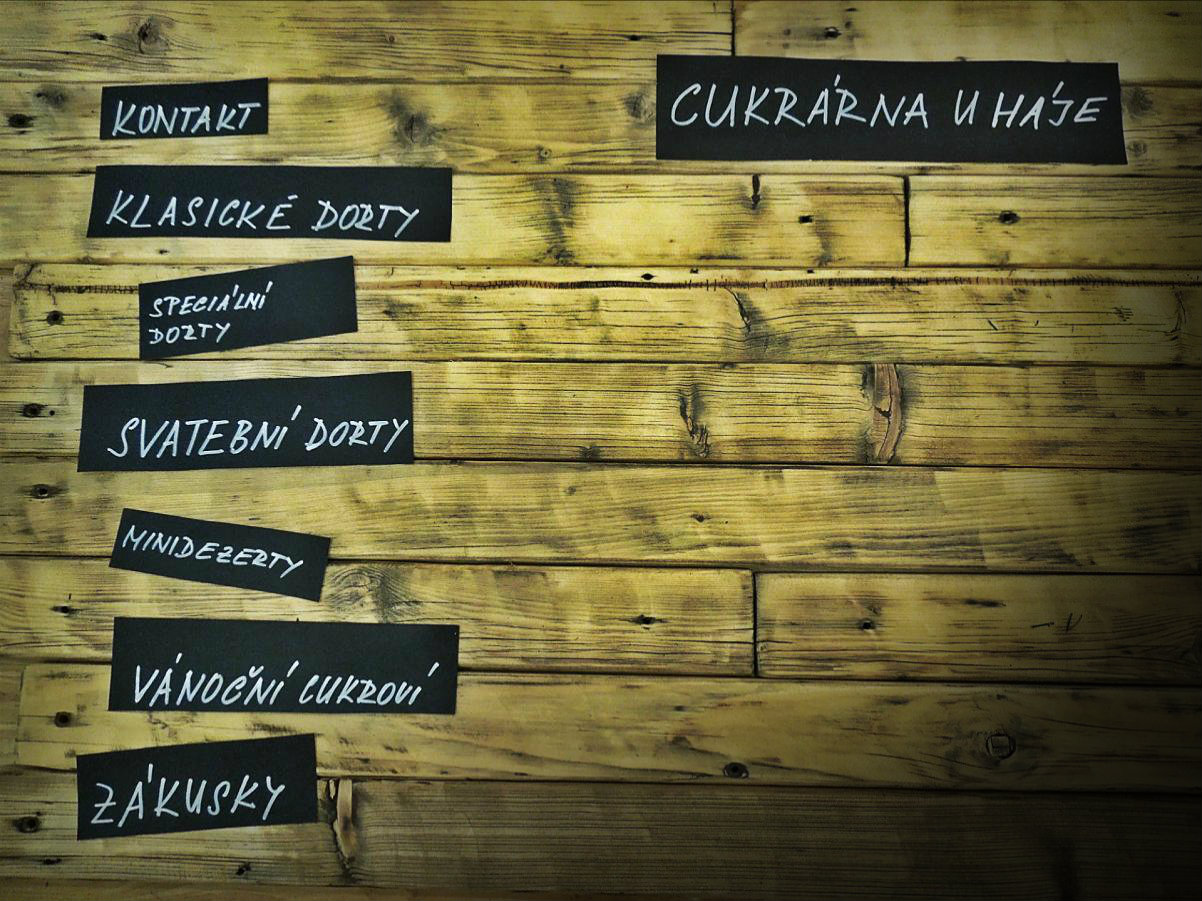 CUKRÁRNA U HÁJE
KONTAKT
KLASICKÉ DORTY
SPECIÁLNÍ
DORTY
SVATEBNÍ DORTY
MINIDEZERTY
VÁNOČNÍ CUKROVÍ
ZÁKUSKY